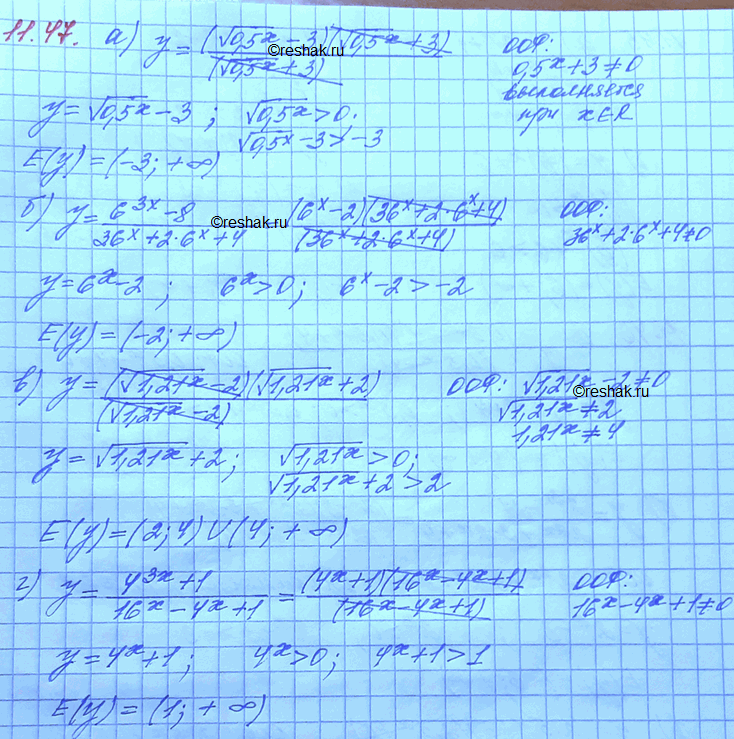 11.47. а) y = (√0,5ˣ − 3)(√0,5ˣ + 3) / (√0,5ˣ + 3) ООФ:
0,5ˣ + 3 ≠ 0
выполняется
при x∈R
©reshak.ru
y = √0,5ˣ − 3 ; √0,5ˣ > 0.
√0,5ˣ − 3 > −3
E(y) = (−3; +∞)
б) y = 6³ˣ − 8 / 36ˣ + 2·6ˣ + 4 (6ˣ − 2)(36ˣ + 2·6ˣ + 4) / (36ˣ + 2·6ˣ + 4) ООФ:
36ˣ + 2·6ˣ + 4 ≠ 0
©reshak.ru
y = 6ˣ − 2 ; 6ˣ > 0 ; 6ˣ − 2 > −2
E(y) = (−2; +∞)
в) y = (√1,21ˣ − 2)(√1,21ˣ + 2) / (√1,21ˣ − 2) ООФ: √1,21ˣ − 2 ≠ 0
√1,21ˣ ≠ 2
1,21ˣ ≠ 4
©reshak.ru
y = √1,21ˣ + 2 ; √1,21ˣ > 0 ;
√1,21ˣ + 2 > 2
E(y) = (2; 4) ∪ (4; +∞)
г) y = 4³ˣ + 1 / 16ˣ − 4ˣ + 1 = (4ˣ + 1)(16ˣ − 4ˣ + 1) / (16ˣ − 4ˣ + 1) ООФ:
16ˣ − 4ˣ + 1 ≠ 0
y = 4ˣ + 1 ; 4ˣ > 0 ; 4ˣ + 1 > 1
E(y) = (1; +∞)